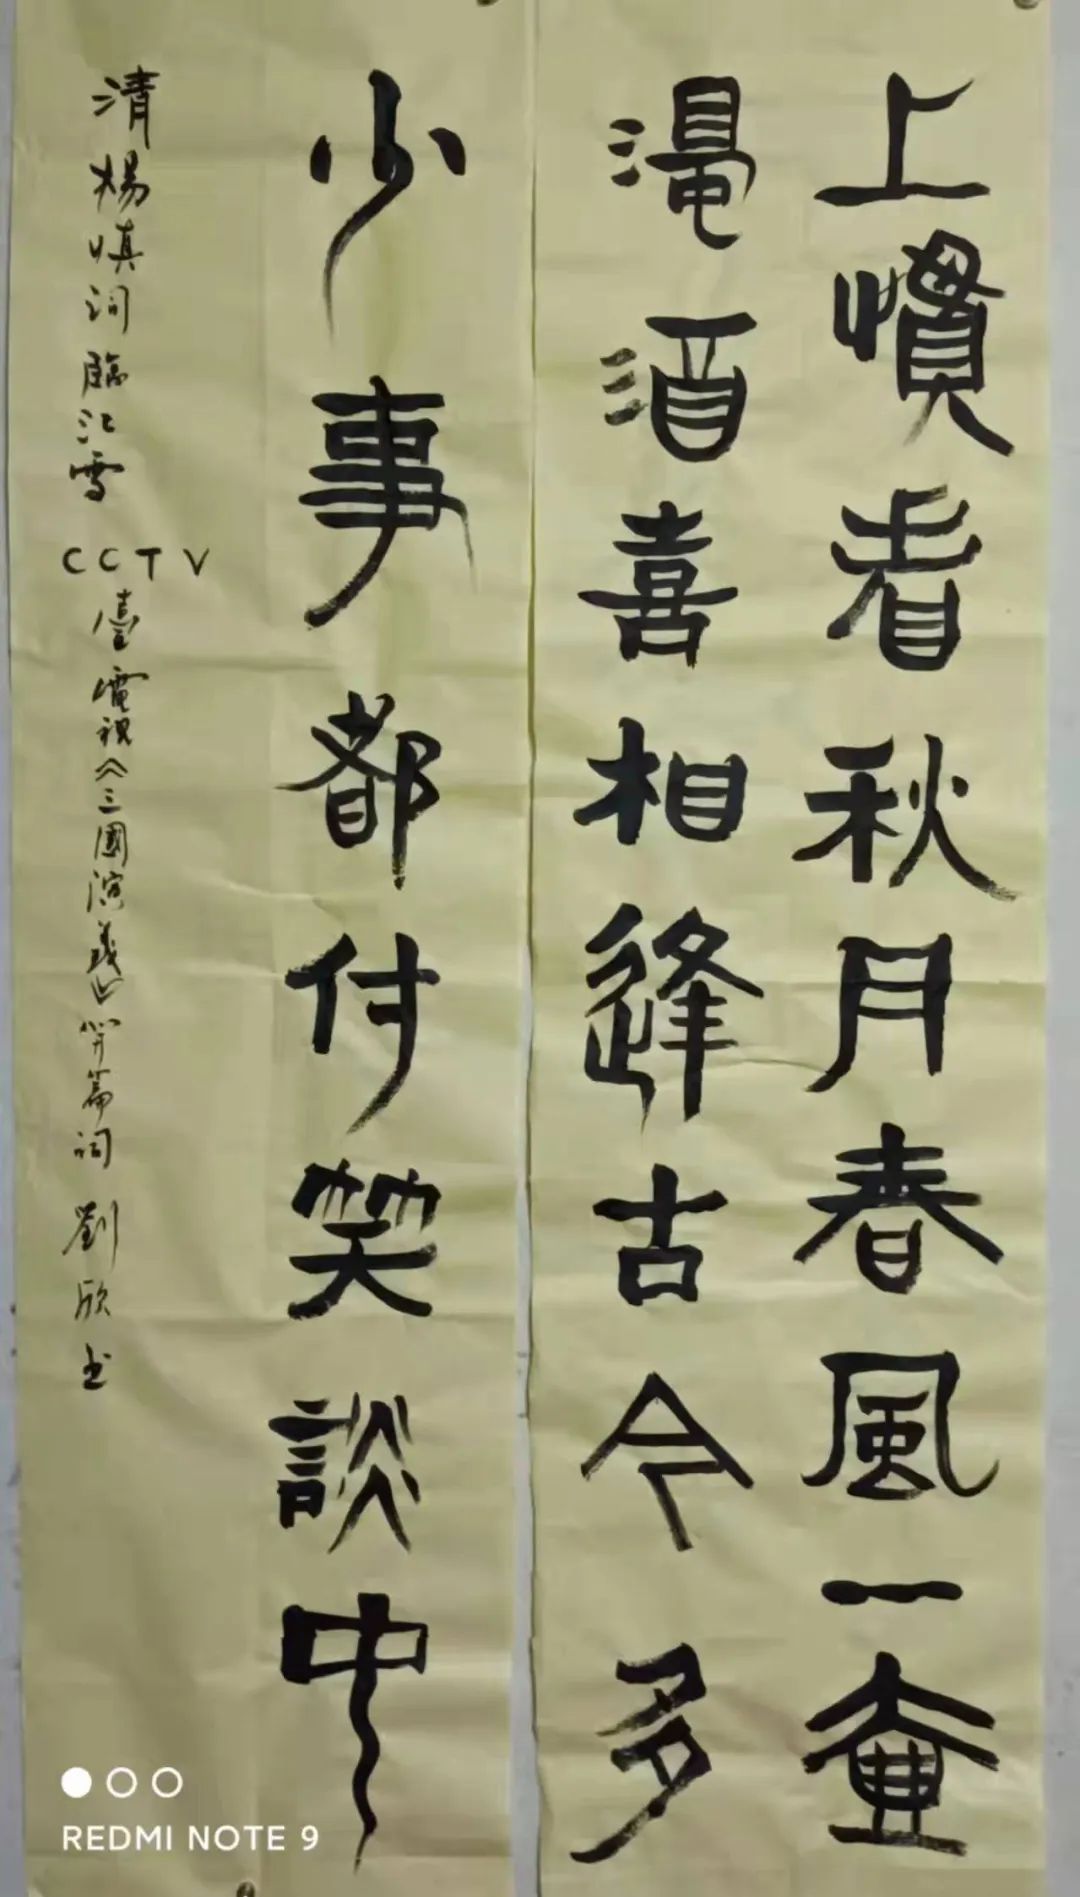 上慣看秋月春風一壺
濁酒喜相逢古今多
少事都付笑談中
清楊慎詞臨江雪 CCTV臺電視《三國演義》開篇詞 劉欣书
REDMI NOTE 9